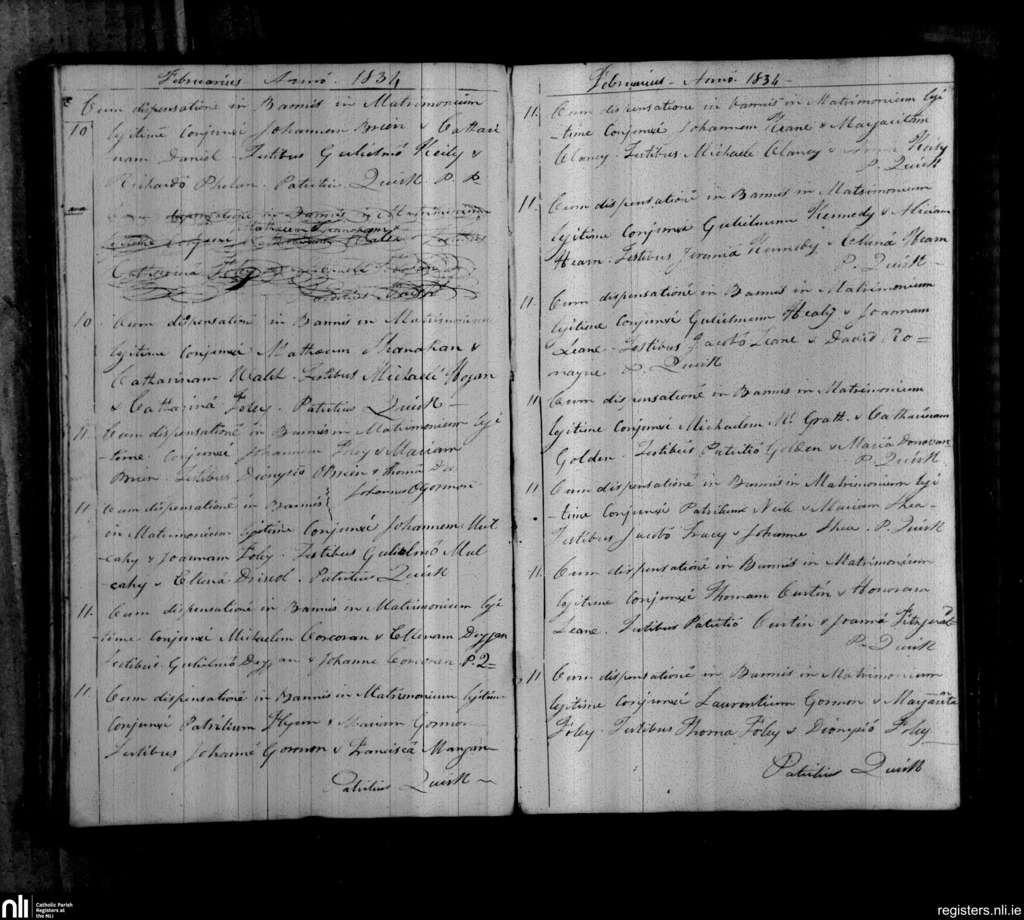 Februarius Anno. 1834
Cum dispensatione in Bannis in Matrimonium
10 legitime Conjunxi Johannem Brien & Cathari
nam Daniel Testibus Gulielmo Keily &
Richardo Phelan. Patritius Quirk P. P.
in Bannis in Matrimonium
Conjunxi Mathaeum Shanahan &
Walsh
Catharina Foley
Patritius Quirk
10 Cum dispensatione in Bannis in Matrimonium
legitime Conjunxi Mathaeum Shanahan &
Catharinam Walsh. Testibus Michaele Hogan
& Catharina Foley. Patritius Quirk
11 Cum dispensatione in Bannis in Matrimonium legi
time Conjunxi Johannem & Mariam
Brien Testibus Dionysio OBrien & Thoma
Johannes OGorman
11 Cum dispensatione in Bannis
in Matrimonium legitime Conjunxi Johannem Mul
cahy & Joannam Foley. Testibus Gulielmo Mul
cahy & Ellena Driscol. Patritius Quirk
11. Cum dispensatione in Bannis in Matrimonium legi
time Conjunxi Michaelem Corcoran & Ellenam Duggan
Testibus Gulielmo Duggan & Johanne Corcoran P. Q
11. Cum dispensatione in Bannis in Matrimonium legitime
Conjunxi Patritium Flynn & Mariam Gorman
Testibus Johanne Gorman & Francisca Mangan
Patritius Quirk
Februarius - Anno. 1834 -
11. Cum dispensatione in bannis in Matrimonium legi
time Conjunxi Johannem Keane & Margaritam
Clancy. Testibus Michaele Clancy & Keily
P. Quirk
11. Cum dispensatione in Bannis in Matrimonium
legitime Conjunxi Gulielmum Kennedy & Miriam
Hearn. Testibus Jeremia Kennedy & Ellena Hearn
P. Quirk
11. Cum dispensatione in Bannis in Matrimonium
legitime Conjunxi Gulielmum Healy & Joannam
Leane - Testibus Jacobo Leane & David Ro=
nayne P. Quirk
11 Cum dispensatione in Bannis in Matrimonium
legitime Conjunxi Michaelem Mc Grath & Catharinam
Golden Testibus Patritio Golden & Maria Donovan
P. Quirk
11 Cum dispensatione in Bannis in Matrimonium legi
time Conjunxi Patritium Neile & Mariam Shea -
Testibus Jacobo Tracy & Johanne Shea. P. Quirk
11. Cum dispensatione in Bannis in Matrimonium
legitime Conjunxi Thomam Curtin & Honoram
Leane. Testibus Patritio Curtin & Joanna Fitzgerald
P. Quirk
11 Cum dispensatione in Bannis in Matrimonium
legitime Conjunxi Laurentium Gorman & Margaritam
Foley. Testibus Thoma Foley & Dionysio Foley
Patritius Quirk
nli Catholic Parish
Registers at
the NLI
registers.nli.ie